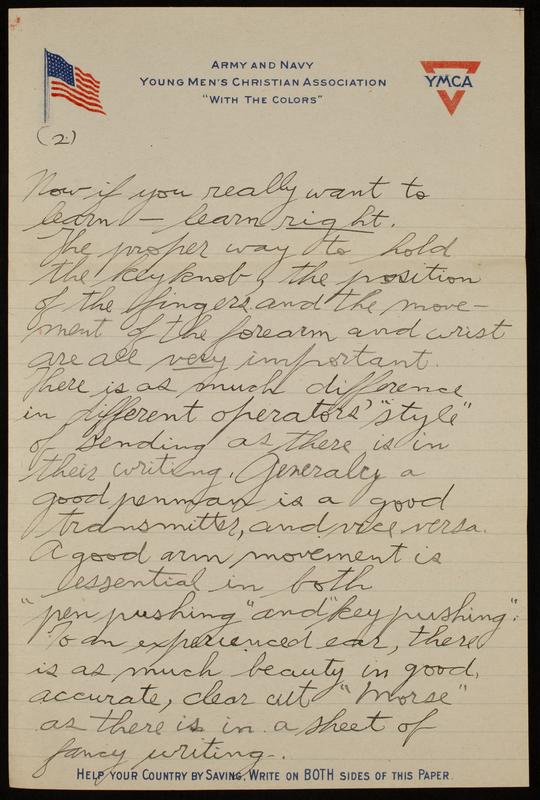 ARMY AND NAVY
YOUNG MEN'S CHRISTIAN ASSOCIATION
"WITH THE COLORS"
YMCA
(2)
Now if you really want to
learn – learn right.
The proper way to hold
the key knob, the position
of the fingers and the move-
ment of the forearm and wrist
are all very important.
There is as much difference
in different operators' "style"
of sending as there is in
their writing. Generaley a
good penman is a good
transmitter, and vice versa.
A good arm movement is
essential in both
"pen pushing" and "key pushing".
To an experienced ear, there
is as much beauty in good,
accurate, clear cut "Morse"
as there is in a sheet of
fancy writing.
HELP YOUR COUNTRY BY SAVING, WRITE ON BOTH SIDES OF THIS PAPER.